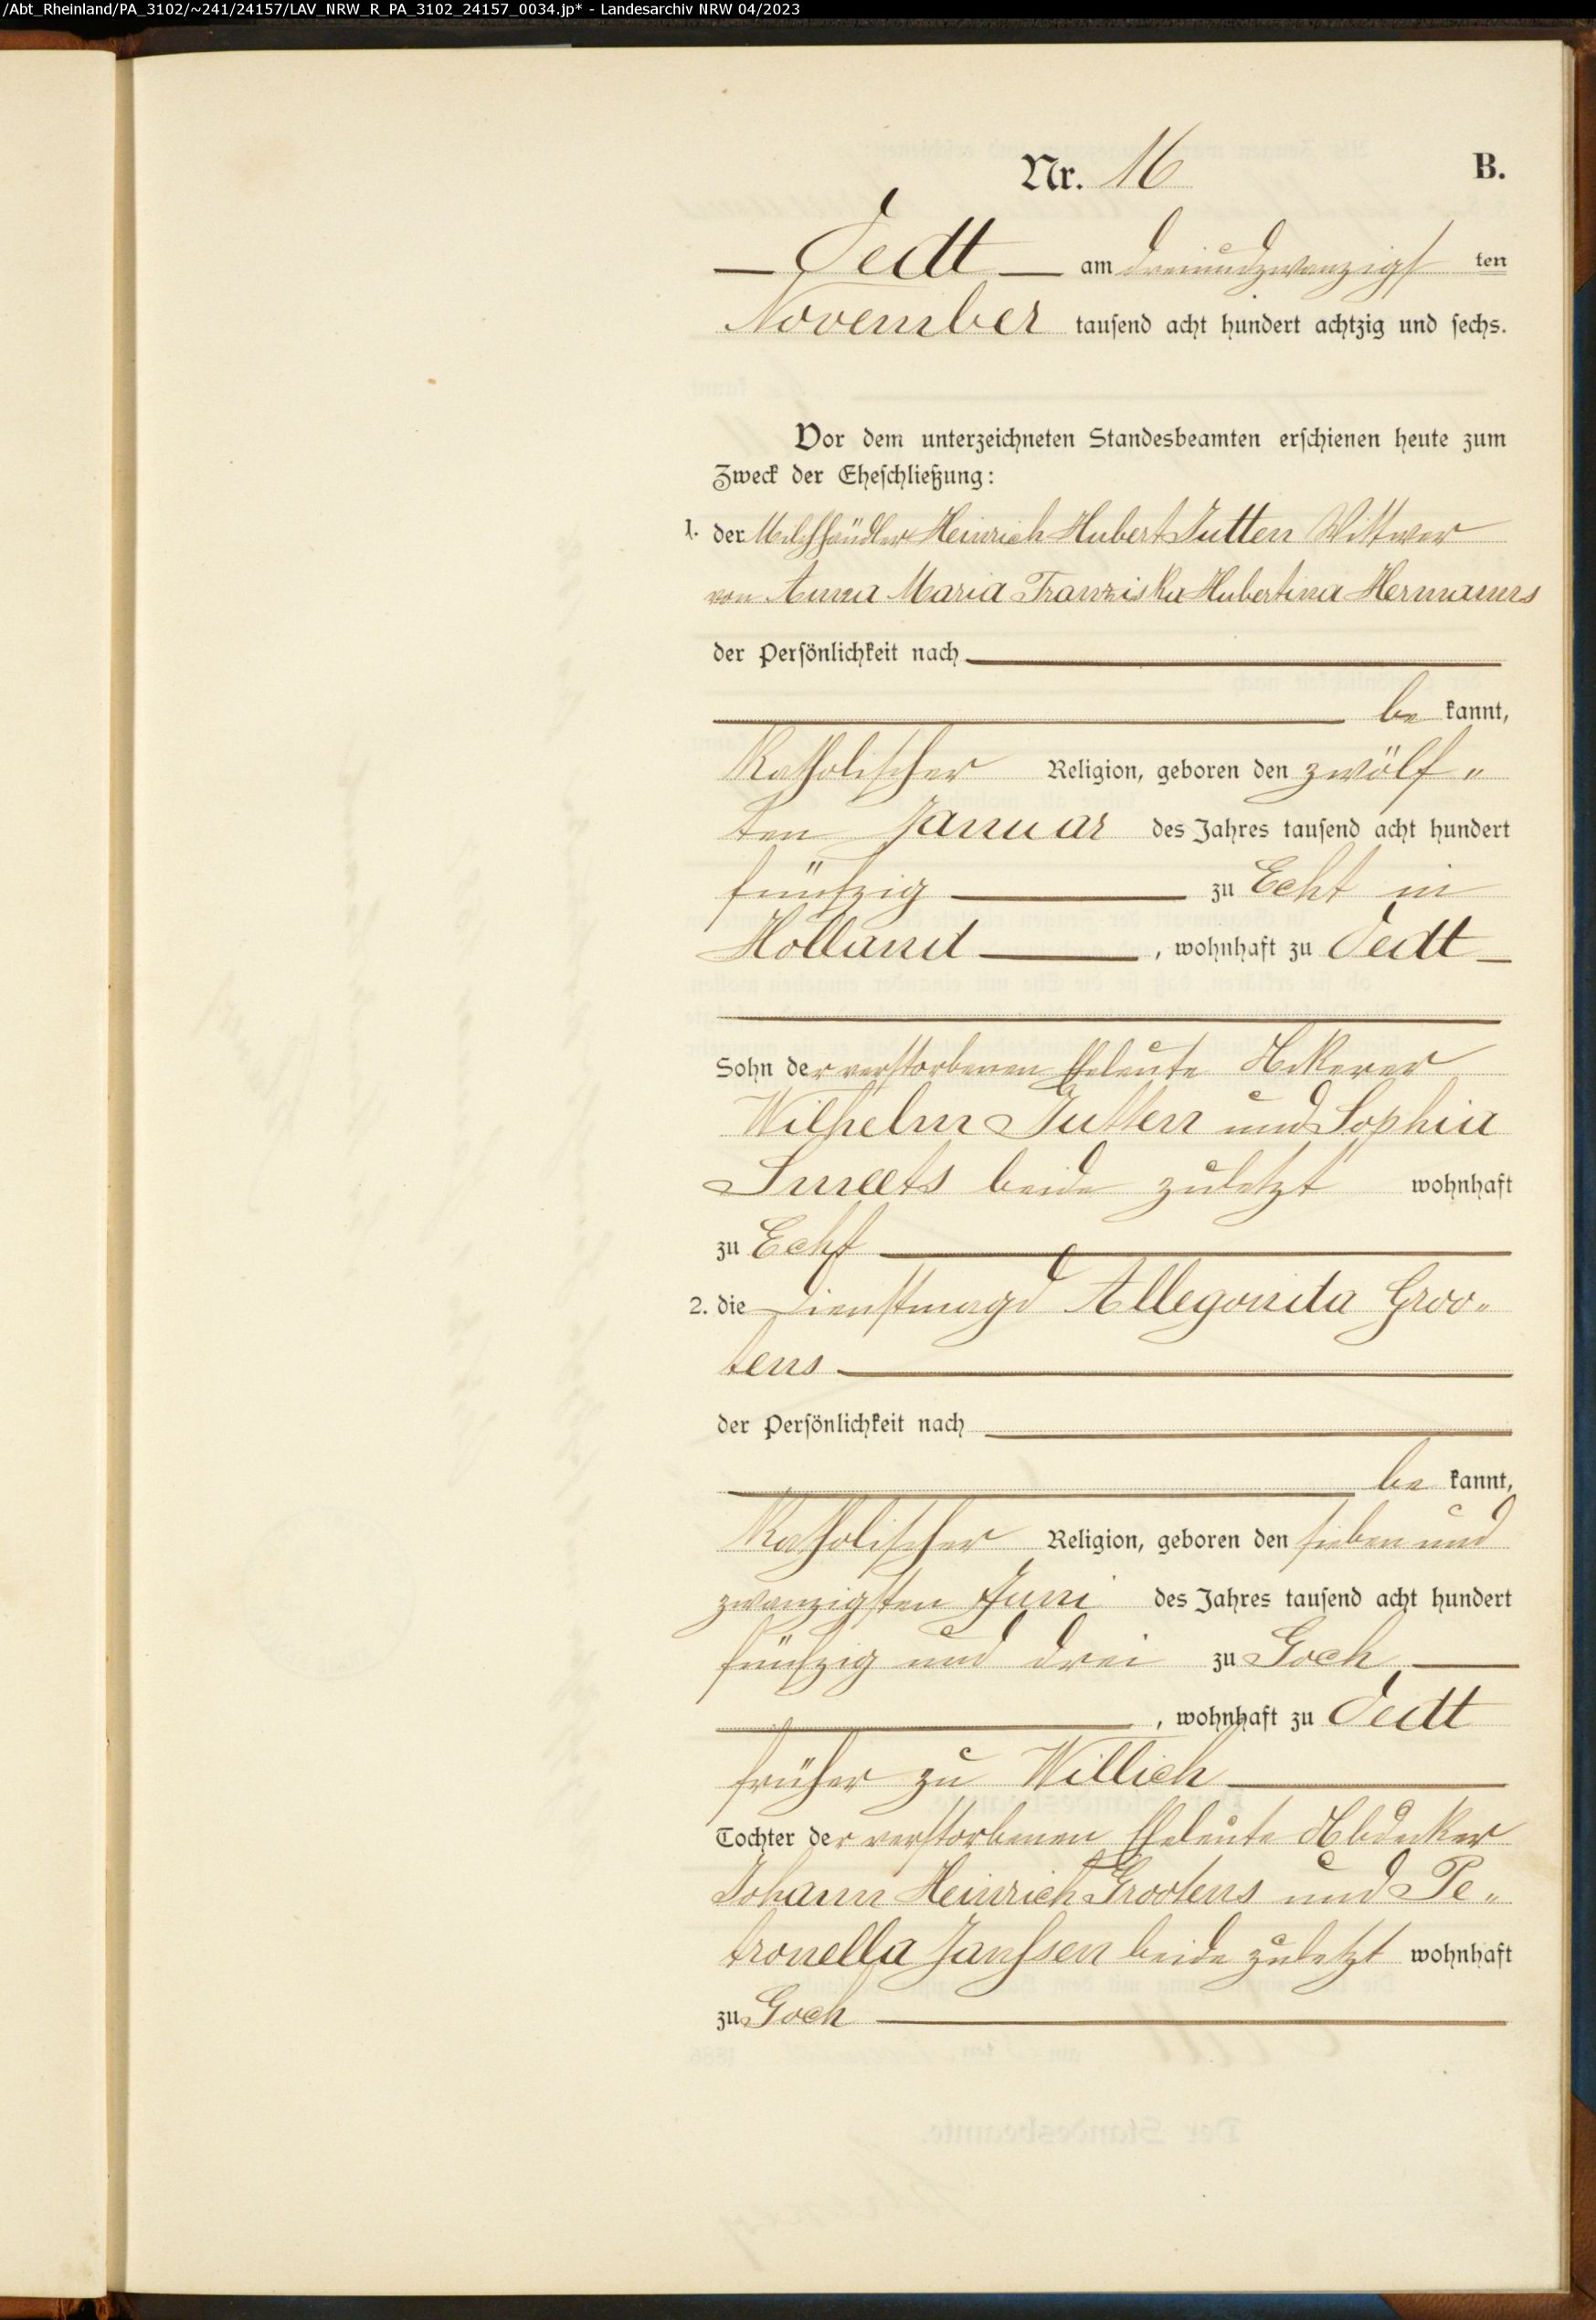 /Abt_Rheinland/PA_3102/~241/24157/LAV_NRW_R_PA_3102_24157_0034.jp* - Landesarchiv NRW 04/2023
Nr. 16
B.
Oedt am dreiundzwanzigsten
November tausend acht hundert achtzig und sechs.
Vor dem unterzeichneten Standesbeamten erschienen heute zum
Zweck der Eheschließung:
1. der Milchhändler Heinrich Hubert Jutten Wittwer
von Anna Maria Franziska Hubertina Hermanns
der Persönlichkeit nach
be kannt,
katholischer Religion, geboren den zwölf„
ten Januar des Jahres tausend acht hundert
fünfzig zu Echt in
Holland, wohnhaft zu Oedt
Sohn der verstorbenen Eheleute Ackerer
Wilhelm Jutten und Sophia
Smeets beide zuletzt wohnhaft
zu Echt
2. die Dienstmagd Allegonda Groo„
tens
der Persönlichkeit nach
be kannt,
katholischer Religion, geboren den sieben und
zwanzigsten Juni des Jahres tausend acht hundert
fünfzig und drei zu Goch
, wohnhaft zu Oedt
früher zu Willich
Tochter der verstorbenen Eheleute Abdecker
Johann Heinrich Grootens und Pe„
tronella Janssen beide zuletzt wohnhaft
zu Goch